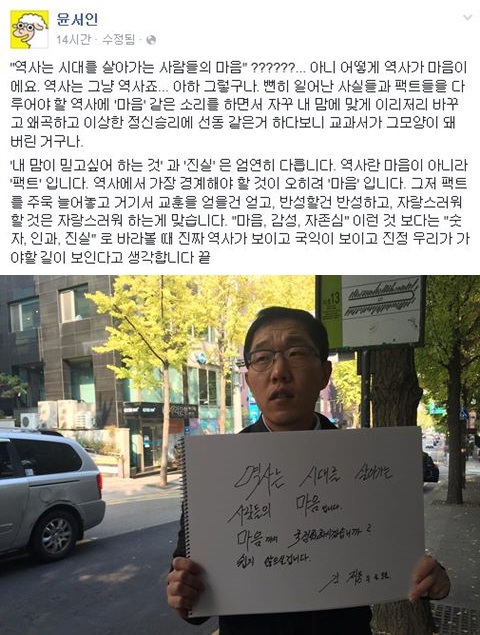 윤서인
14시간 · 수정됨 ·
"역사는 시대를 살아가는 사람들의 마음" ??????... 아니 어떻게 역사가 마음이
에요. 역사는 그냥 역사죠... 아하 그렇구나. 뻔히 일어난 사실들과 팩트들을 다
루어야 할 역사에 '마음' 같은 소리를 하면서 자꾸 내 맘에 맞게 이리저리 바꾸
고 왜곡하고 이상한 정신승리에 선동 같은거 하다보니 교과서가 그모양이 돼
버린 거구나.
'내 맘이 믿고싶어 하는 것' 과 '진실' 은 엄연히 다릅니다. 역사란 마음이 아니라
'팩트' 입니다. 역사에서 가장 경계해야 할 것이 오히려 '마음' 입니다. 그저 팩트
를 주욱 늘어놓고 거기서 교훈을 얻을건 얻고, 반성할건 반성하고, 자랑스러워
할 것은 자랑스러워 하는게 맞습니다. "마음, 감성, 자존심" 이런 것 보다는 "숫
자, 인과, 진실" 로 바라볼 때 진짜 역사가 보이고 국익이 보이고 진정 우리가 가
야할 길이 보인다고 생각합니다 끝
13
역사는 시대를 살아가는
사람들의 마음입니다.
마음까지 국정화하시겠습니까?
쉽지 않으실겁니다.